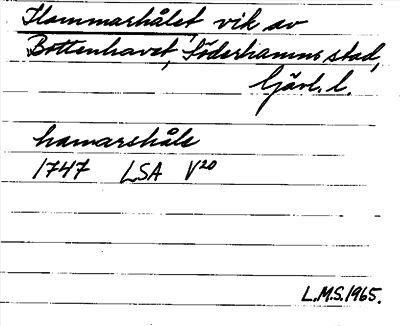 Hammarhålet, vik av
Bottenhavet, Söderhamns stad,
Gävl. l.
hamarshåls
1747 LSA V20
L.M.S. 1965.